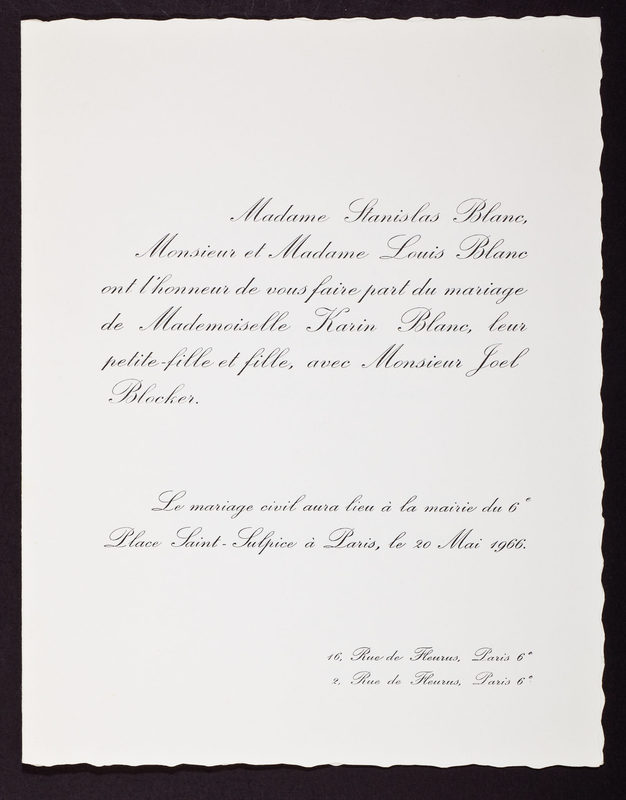 Madame Stanislas Blanc,
Monsieur et Madame Louis Blanc
ont l'honneur de vous faire part du mariage
de Mademoiselle Karin Blanc, leur
petite-fille et fille, avec Monsieur Joel
Blocker.
Le mariage civil aura lieu à la mairie du 6e
Place Saint-Sulpice à Paris, le 20 Mai 1966.
16, Rue de Fleurus, Paris 6e
2, Rue de Fleurus, Paris 6e